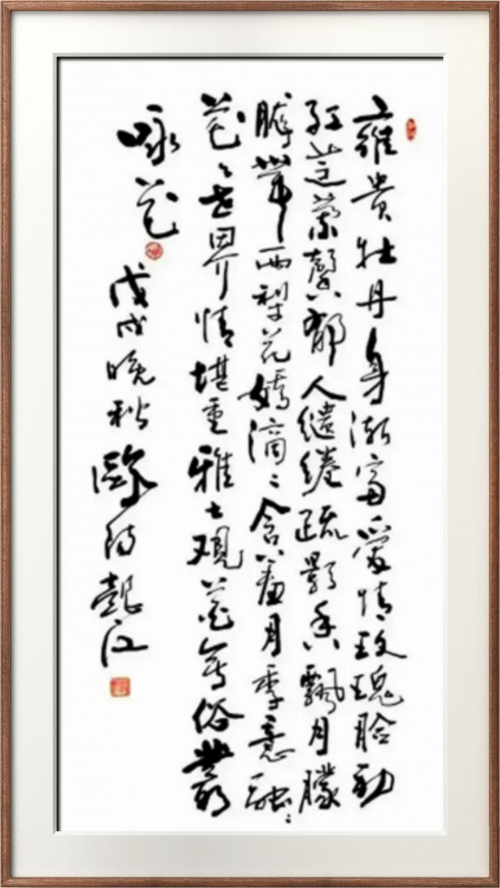 雍贵牡丹身渐富爱情玫瑰脸动
红芝蘭馨郁人缱绻疏影香飘月朦
胧带雨梨花嬌滴滴含羞月季意融融
花花世界情堪重雅士观花俗丛
咏花
戊戌晚秋 江